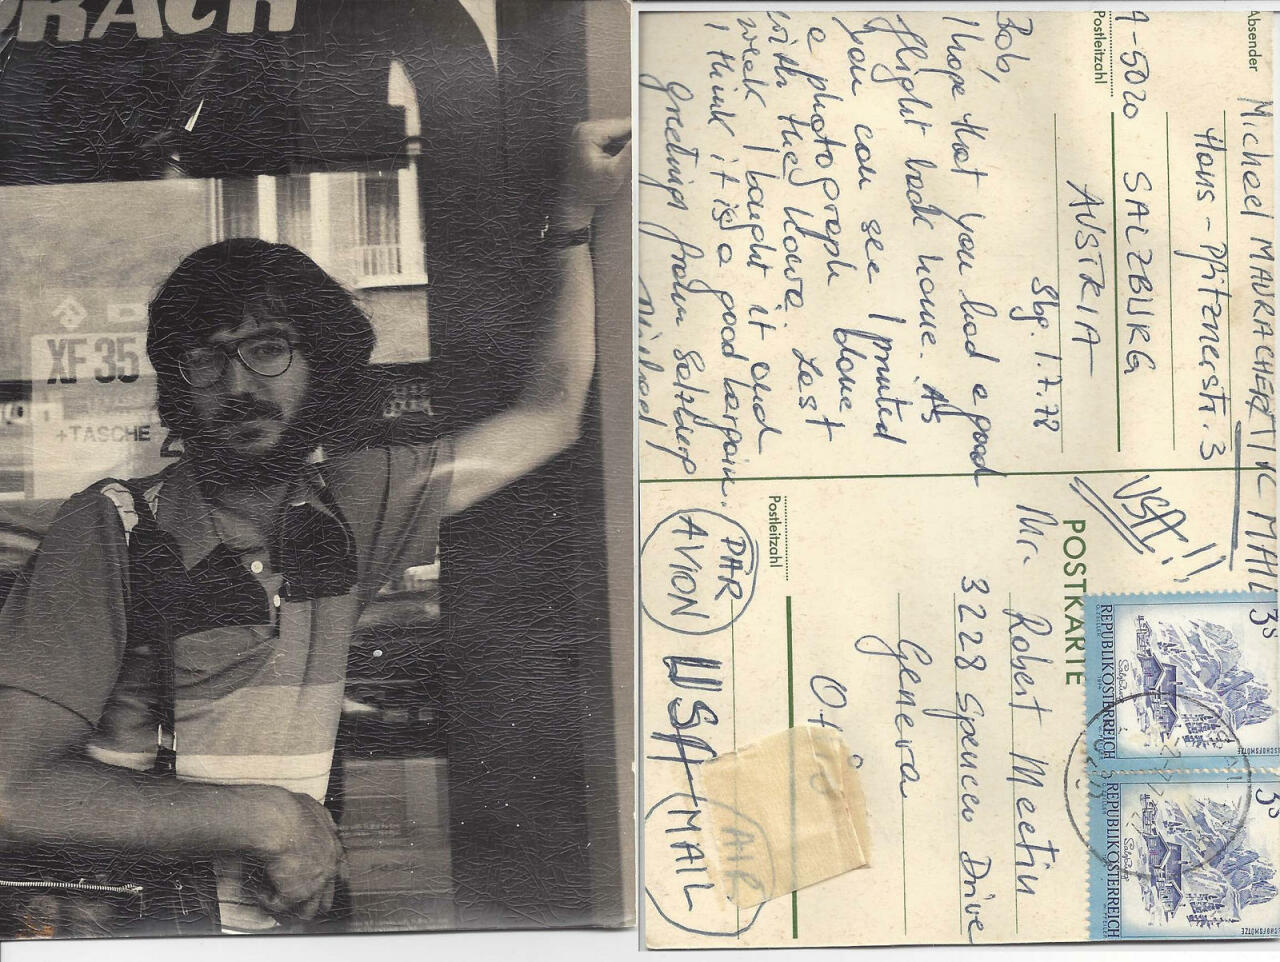 DRACH
XF 35
+TASCHE
Absender
Michael MAURACHER
Hans-Pfitznerstr. 3
A-5020 SALZBURG
Postleitzahl
AUSTRIA
Sbg. 1.7.78
Bob,
I hope that you had a good
flight back home. As
you can see I printed
a photograph done
with the Howe. Last
week I bought it and
I think it is a good bargain.
Greetings from Salzburg
Michael
ARCTIC MAIL
USA!!
POSTKARTE
Mr. Robert Meetin
3228 Spencer Drive
Geneva
Ohio
Postleitzahl
PAR
AVION
USA
AIR
MAIL
3s
REPUBLIK ÖSTERREICH
BISCHOFSMÜTZE
3s
REPUBLIK ÖSTERREICH
BISCHOFSMÜTZE